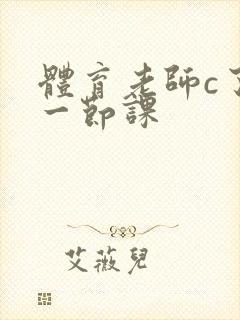 體育老師c了
一節課
艾薇兒